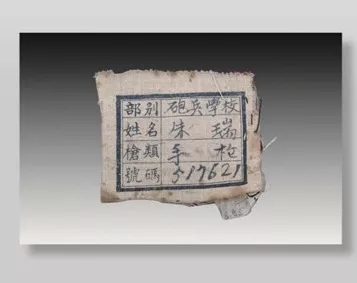 部别 砲兵學校
姓名 朱瑞
槍類 手枪
號碼 517621